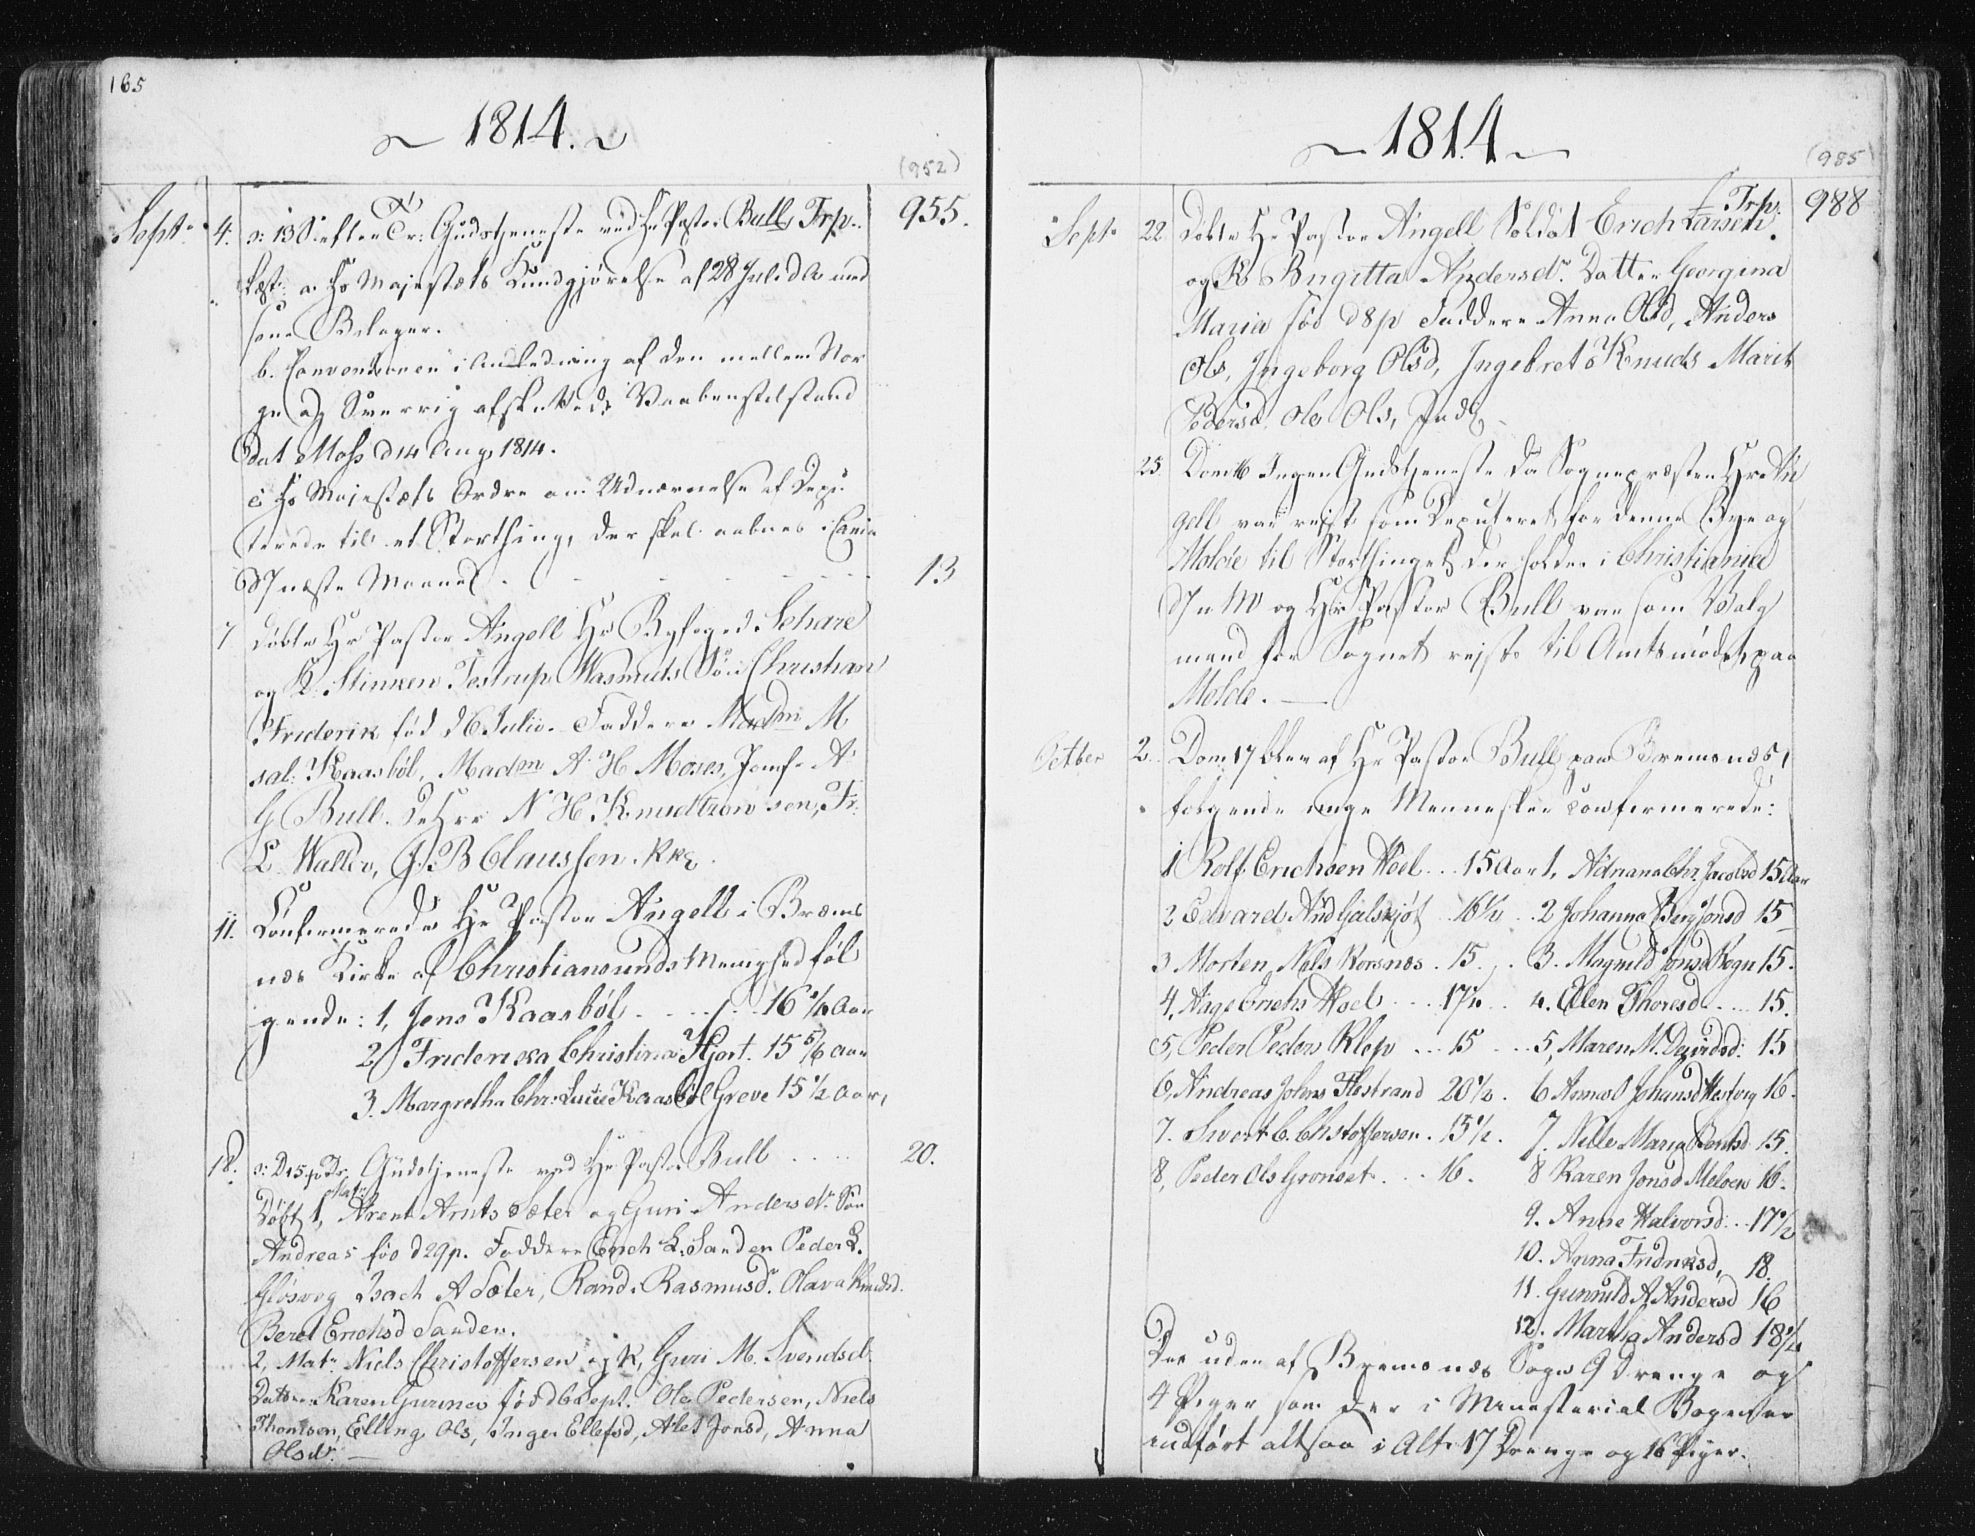 165
1814.
(952)
Sept. 4. 13 S. efter Tr: Gudstjeneste ved Hr Pastor Bull Trp. 955.
Læst: a. Hs Majestæts Kundgjørelse af 28 Juli d A med
sine Bilager.
b. Conventionen i Anledning af den mellem Nor
ge og Sverrig afsluttede Vaabenstilstand
Dat Moss d 14 Aug. 1814.
c. Hs Majestæts Ordre om Udnævnelse af Depu
terede til et Storthing, der skal aabnes i Xania
d 7 næste Maaned. 13
7 Døbte Hr Pastor Angell Hr Byfoged Schare
og K. Stinken Testrup Wasmuths Søn Christian
Friderik fød d 6 Julii. Faddere Madm M
sal: Kaasbøl, Madm A H Moses, Jomf. A
G Bull. DeHrr N H Knudtzon sen, Fr.
L Waller, G. B Claussen.
11. Confirmerede Hr Pastor Angell i Bræms
næs Kirke af Christiansunds Menighed føl
gende: 1, Jens Kaasbøl 16 ½ Aar
2, Friderica Christina Hjort. 15 5/6 Aar
3. Margretha Chr: Lucie Kaasbøl Greve 15 ½ Aar,
18. D 15 p Tr. Gudstjeneste ved Hr Pastor Bull 20.
Døbt 1, Matr Arent Arnts Sæter og Guri Andersdr Søn
Andreas fød d 29 p. Faddere Erich L. Sanden Peder L.
Gløsvog Isach A Sæter, Rand. Rasmusd. Olava Knudsd.
Beret Erichsd Sanden.
2, Matr Niels Christoffersen og K, Guri M. Svendsd.
Datter Karen Gurinea fød d 6 Sept. Ole Pedersen, Niels
Thomsen, Elling Ols, Inger Ellefsd, Alet Jonsd, Anna
Olsdr.
1814
(985)
Sept. 22 Døbte Hr Pastor Angell Soldat Erich Larsen Trp. 988
og K. Brigitta Andersdr Datter Georgina
Maria fød d 8 p Faddere Anna Olsd, Anders
Ols, Ingeborg Olsd, Ingebret Knuds Marit
Pedersd. Ole Ols,
25. Dom 16 Ingen Gudstjeneste da Sognepræsten Hr An
gell var reist som Deputeret for denne Bye og
Molde til Storthinget der holdes i Christiania
d 7 n M og Hr Pastor Bull var som Valg
mand for Sognet reist til Amtsmødet paa
Molde.
Octber 2. Dom 17 blev af Hr Pastor Bull paa Bremsnæs,
følgende unge Mennesker confirmerede:
1 Rolf Erichsen Hoel 15 Aar 1, Adriana Chr. Jacobsd 15 Aar
2 Edvard And Galskjøt 16 ½ 2 Johanna Berg Jonsd 15
3 Morten Nils Korsnæs. 15. 3. Magnild Jonsd Kogn 15.
4, Aage Erichs Hoel 17 ½ 4. Ellen Thoresd 15.
5, Peder Peders Klep 15 5, Maren M. Davidsd: 15
6, Andreas Johns Flostrand 20 ½. 6 Johansd Hestvig 16.
7. Sivert C. Chstoffersen. 15 ½. 7. Nille Maria Bentsd 15.
8, Peder Ols Grønset 16. 8 Karen Jonsd Meloen 16.
9. Anne Halvorsd: 17 ½
10. Anna Fridriksd, 18.
11. Gunnild A Andersd 16
12. Martha Andersd 18 ½
Des uden af Bremsnæs Sogn 9 Drenge og
4 Piger som der i Ministerial Bogen er
indført altsaa i Alt 17 Drenge og 16 Piger.